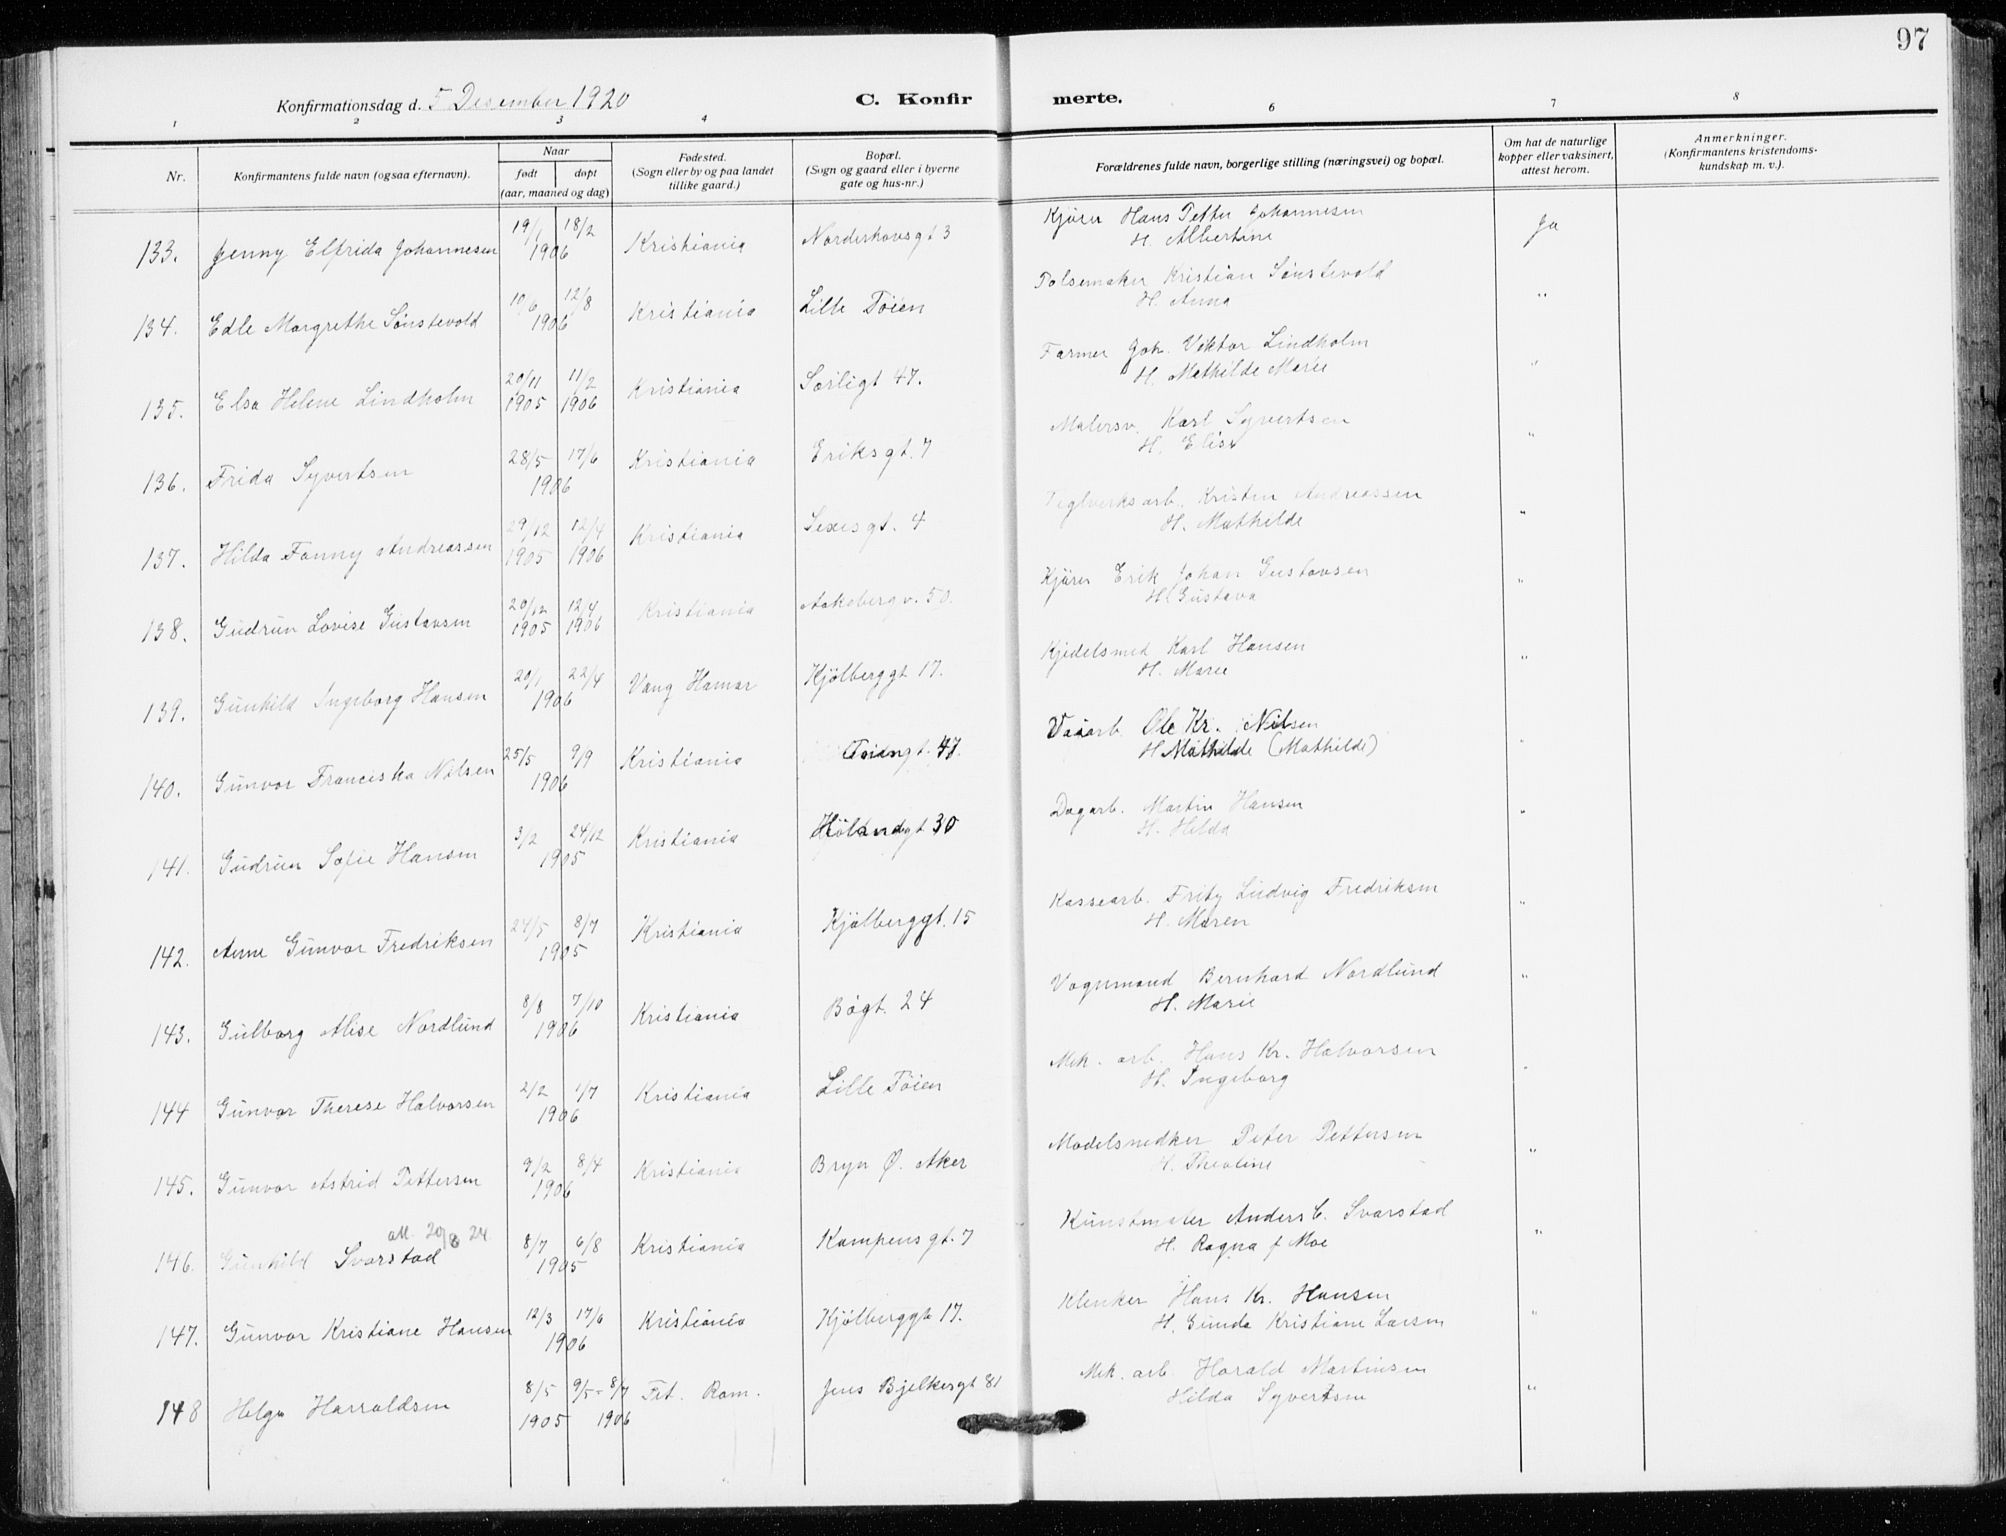 97
Konfirmationsdag d. 5 Desember 1920
C. Konfir
merte.
1 2 3 4 6 7 8
Nr.
Konfirmantens fulde navn (ogsaa efternavn).
Naar
født døpt
(aar, maaned og dag)
Fødested.
(Sogn eller by og paa landet
tillike gaard.)
Bopæl.
(Sogn og gaard eller i byerne
gate og hus-nr.)
Forældrenes fulde navn, borgerlige stilling (næringsvei) og bopæl.
Om hat de naturlige
kopper eller vaksinert,
attest herom.
Anmerkninger.
(Konfirmantens kristendoms-
kundskap m. v.).
133. Jenny Elfrida Johannesen 19/1 18/2 1906 Kristiania Norderhovsgt 3 Kjörer Hans Petter Johannesen Ja
H. Albertine
134. Edle Margrethe Sönstevold 10/6 12/8 1906 Kristiania Lille Töien Pölsemaker Kristian Sönstevold "
H. Anna
135. Elsa Helene Lindholm 20/11 1905 11/2 1906 Kristiania Sörligt 47. Farmer Joh. Viktor Lindholm "
H. Mathilde Marie
136. Frida Syvertsen 28/5 17/6 1906 Kristiania Eriksgt. 7 Malersv. Karl Syvertsen "
H. Elise
137. Hilda Fanny Andreassen 29/12 1905 12/4 1906 Kristiania Sexesgt. 4 Teglverksarb. Kristen Andreassen "
H. Mathilde
138. Gudrun Lovise Gustavsen 20/12 1905 12/4 1906 Kristiania Aakebergv. 50. Kjörer Erik Johan Gustavsen "
H. Gustava
139. Gunhild Ingeborg Hansen 20/1 22/4 1906 Vang Hamar Kjölberggt 17. Kjedelsmed Karl Hansen "
H. Marie
140. Gunvor Franciska Nilsen 25/5 9/9 1906 Kristiania Töiengt. 47. Ole Kr. Nilsen "
H Mathilde (Mathilde)
141. Gudrun Sofie Hansen 3/2 24/12 1905 Kristiania Hölandgt 30 Dagarb. Martin Hansen "
H. Hilda
142. Anne Gunvor Fredriksen 24/5 8/7 1905 Kristiania Kjölberggt. 15 Kassearb. Fritz Ludvig Fredriksen "
H. Maren
143. Gulborg Alise Nordlund 8/8 7/10 1906 Kristiania Bögt. 24 Vognmand Bernhard Nordlund "
H. Marie
144 Gunvor Therese Halvorsen 2/2 1/7 1906 Kristiania Lille Töien Mek. arb. Hans Kr. Halvorsen "
H. Ingeborg
145. Gunvor Astrid Pettersen 9/2 8/4 1906 Kristiania Bryn Ø. Aker Modelsnedker Peter Pettersen "
H. Theoline
att. 20/8 24
146. Gunhild Svarstad 8/7 6/8 1905 Kristiania Kampensgt. 7 Kunstmaler Anders C. Svarstad "
H. Ragna f Moe
147. Gunvor Kristiane Hansen 12/3 17/6 1906 Kristiania Kjölberggt 17. Klinker Hans Kr. Hansen "
H. Gunda Kristiane Larsen
148 Helga Harraldsen 8/5 1905 9/5 - 8/7 1906 Fet. Rom. Jens Bjelkesgt 81 Mek. arb Harald Martinsen "
Hilda Syvertsen